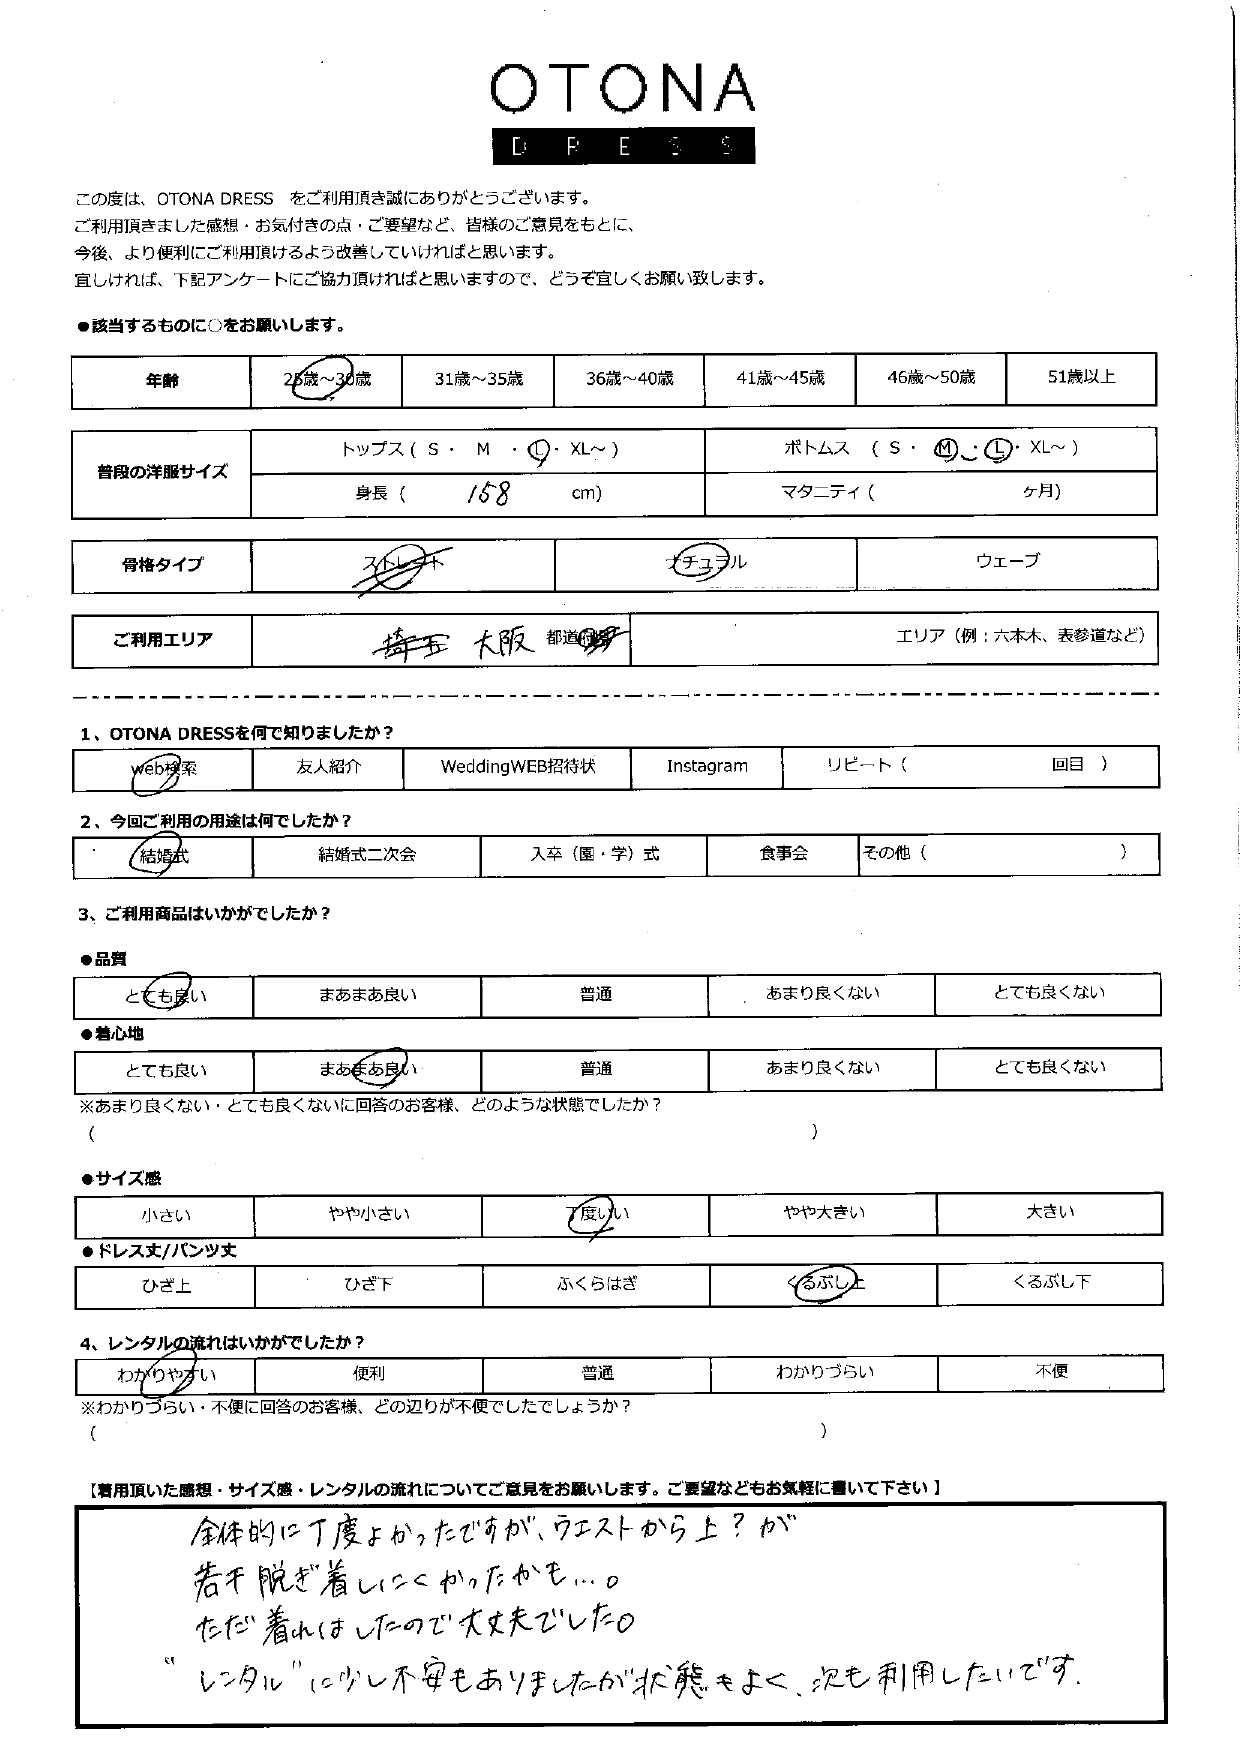 OTONA
DRESS
この度は、OTONA DRESS をご利用頂き誠にありがとうございます。
ご利用頂きました感想・お気付きの点・ご要望など、皆様のご意見をもとに、
今後、より便利にご利用頂けるよう改善していければと思います。
宜しければ、下記アンケートにご協力頂ければと思いますので、どうぞ宜しくお願い致します。
●該当するものに○をお願いします。
年齢 25歳～30歳 31歳～35歳 36歳～40歳 41歳～45歳 46歳～50歳 51歳以上
普段の洋服サイズ トップス ( S ・ M ・ L ・ XL～ ) ボトムス ( S ・ M ・ L ・ XL～ )
身長 ( 158 cm) マタニティ ( ケ月)
骨格タイプ ストレート ナチュラル ウェーブ
ご利用エリア 埼玉 大阪 都道府県 エリア（例：六本木、表参道など）
1、OTONA DRESSを何で知りましたか？
web検索 友人紹介 WeddingWEB招待状 Instagram リピート ( 回目 )
2、今回ご利用の用途は何でしたか？
結婚式 結婚式二次会 入卒（園・学）式 食事会 その他 ( )
3、ご利用商品はいかがでしたか？
●品質
とても良い まあまあ良い 普通 あまり良くない とても良くない
●着心地
とても良い まあまあ良い 普通 あまり良くない とても良くない
※あまり良くない・とても良くないに回答のお客様、どのような状態でしたか？
( )
●サイズ感
小さい やや小さい 丁度いい やや大きい 大きい
●ドレス丈/パンツ丈
ひざ上 ひざ下 ふくらはぎ くるぶし上 くるぶし下
4、レンタルの流れはいかがでしたか？
わかりやすい 便利 普通 わかりづらい 不便
※わかりづらい・不便に回答のお客様、どの辺りが不便でしたでしょうか？
( )
【着用頂いた感想・サイズ感・レンタルの流れについてご意見をお願いします。ご要望などもお気軽に書いて下さい】
全体的に丁度よかったですが、ウエストから上？が
若干脱ぎ着しにくかったかも…。
ただ着れはしたので大丈夫でした。
“レンタル”に少し不安もありましたが状態もよく、次も利用したいです.